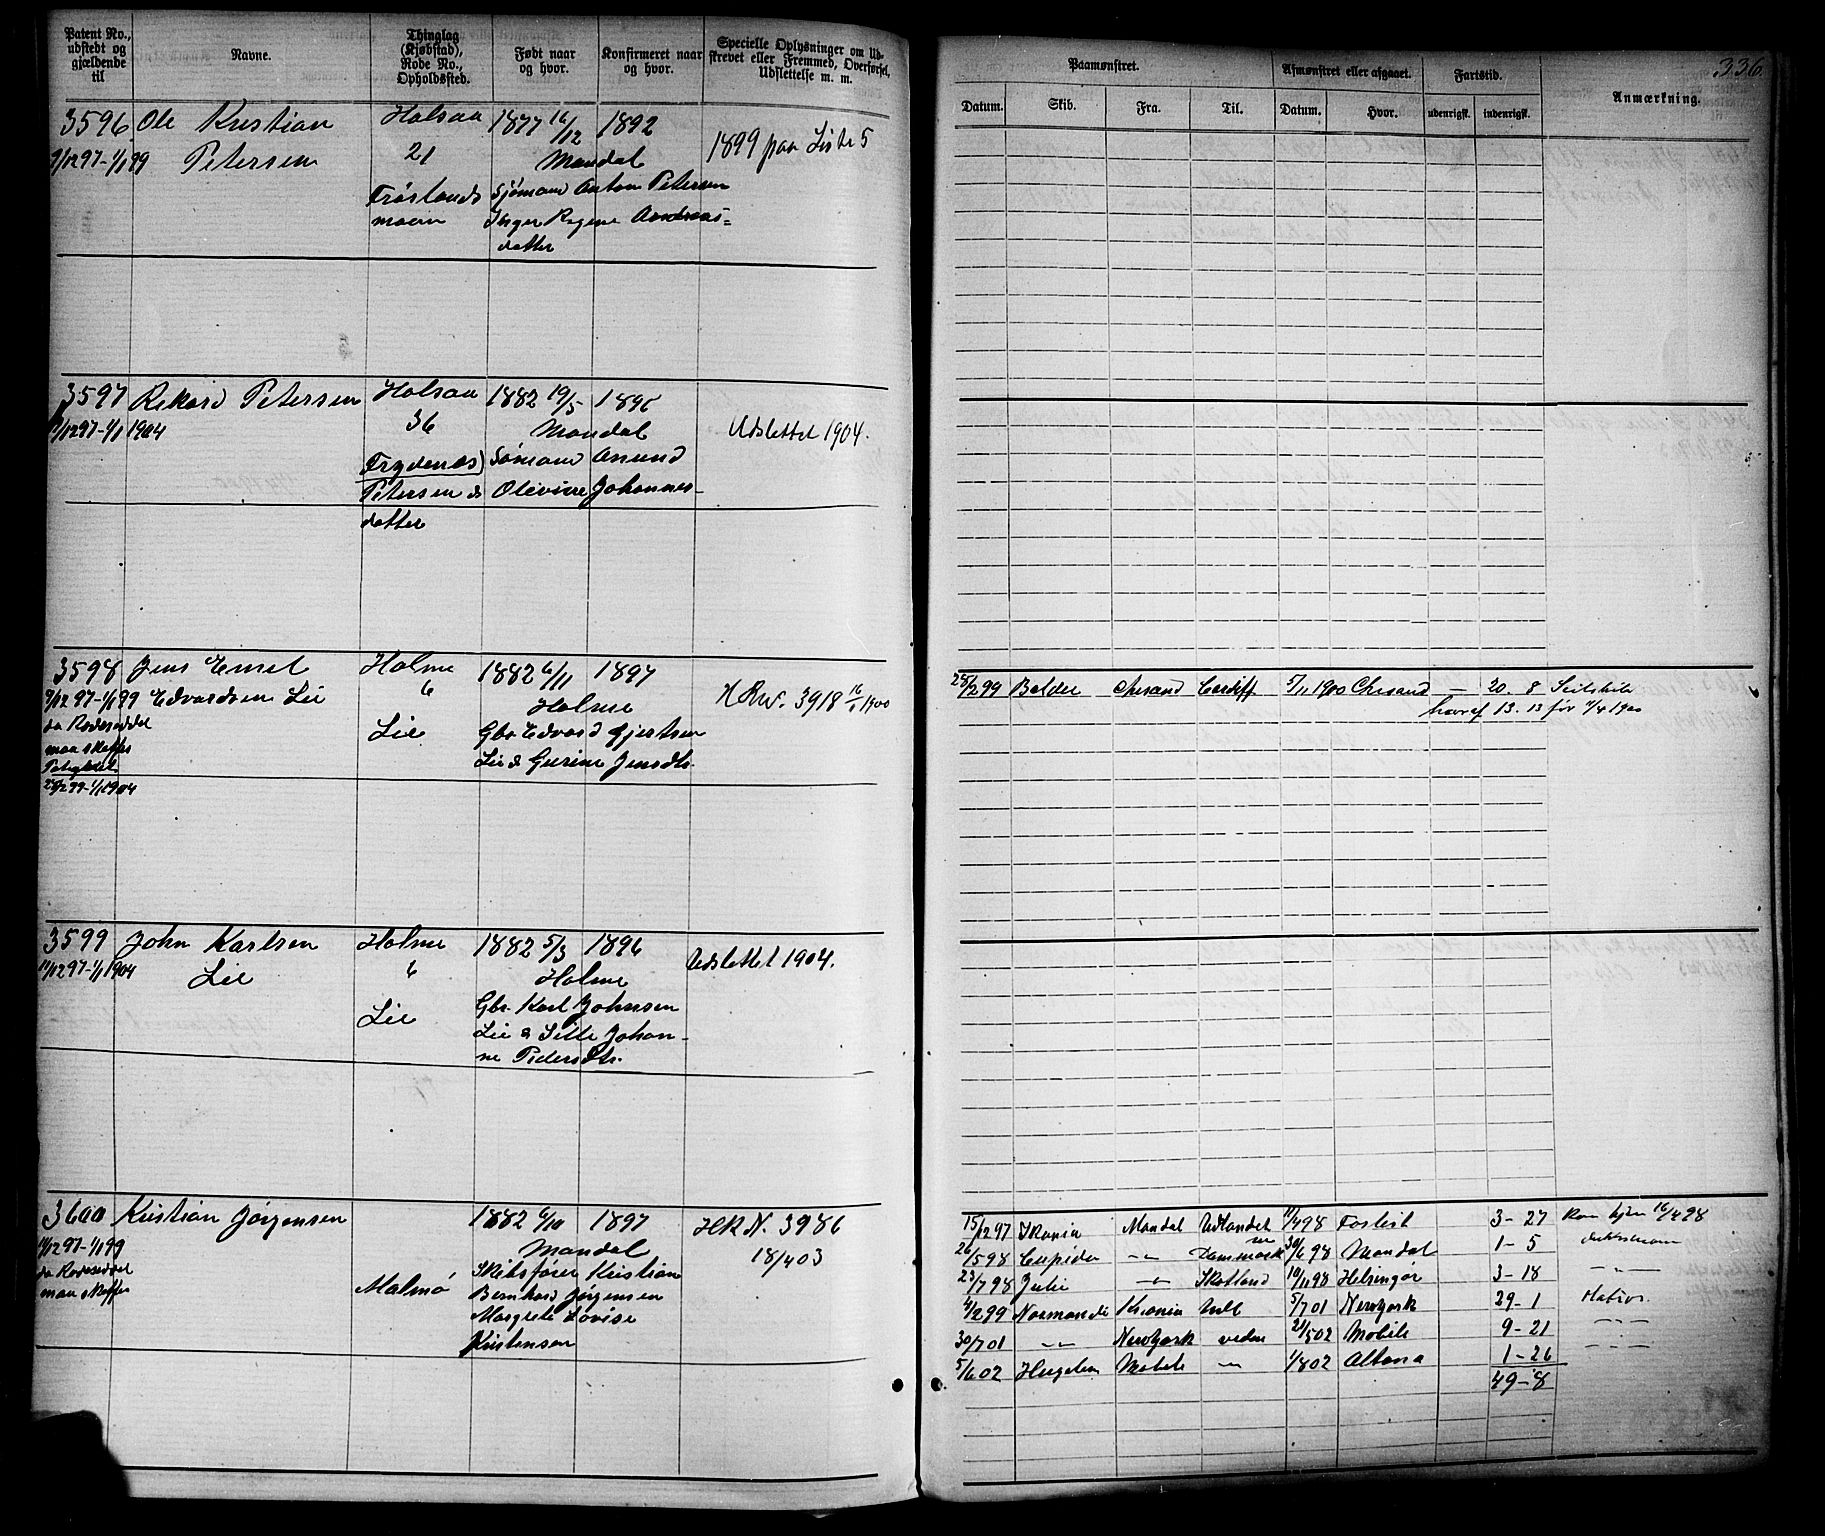 336.
Patent No., udstedt og gjældende til
Navne.
Thinglag (Kjøbstad), Rode No., Opholdssted.
Født naar og hvor.
Konfirmeret naar og hvor.
Specielle Oplysninger om Udskrevet eller Fremmed, Overførsel, Udslettelse m. m.
Paamønstret.
Afmønstret eller afgaaet.
Fartstid.
Anmærkning.
Datum.
Skib.
Fra.
Til.
Datum.
Hvor.
udenrigsk.
indenrigsk.
3596 Ole Kristian Holsaa 1877 16/12 1892
9/12 97-1/1 99 Petersen 21 Mandal 1899 paa Liste 5
Frøslands Sjømand Anton Petersen
moein Inger Regine Andreas-
datter
3597 Rikard Petersen Holsaa 1882 19/5 1896
9/12 97-1/1 1904 36 Mandal Udslettet 1904.
Frydenæs) Sømand Anund
Petersen & Olevine Johannes-
datter
3598 Jens Emil Holme 1882 6/11 1897
9/12 97-1/1 99 Edvardsen Lie 6 Holme H Rw. 3918 16/1 1900
da Rodeseddel Lie Gbr Edvard Gjertsen
maa skaffes Lie & Gurine Jensdtr.
25/2 99-1/1 1904
25/2 99 Balder Chrsand Cardiff 5/11 1900 Chrsand — 20. 8 Seilskib
hvoraf 13. 13 før 1/4 1900
3599 John Karlsen Holme 1882 5/3 1896
11/12 97-1/1 1904 Lie 6 Holme Udslettet 1904.
Lie Gbr. Karl Johnsen
Lie & Sille Johan-
ne Pedersdtr.
3600 Kristian Jørgensen 1882 6/10 1897 HR N. 3986
11/12 97-1/1 99 Mandal 18/4 03
da Rodeseddel Malmø Skibsfører Kristian
maa skaffes Bernhard Jørgensen
Margrete Lovise
Kristensen
15/12 97 Skania Mandal Udlandet 11/4 98 3-27 16/4 98
26/5 98 Cupido —"— Danmark 30/6 98 Mandal 1-5 dæksmann
23/7 98 Julie —"— Skotland 10/11 98 Helsingør 3-18 —"—
4/2 99 Normandie Krania Udl 5/7 01 Newyork 29-1 Matros.
30/7 01 —"— Newyork viden 21/5 02 Mobile 9-21 —"—
5/6 02 Mobile —"— 1/8 02 Altona 1-26 —"—
49-8